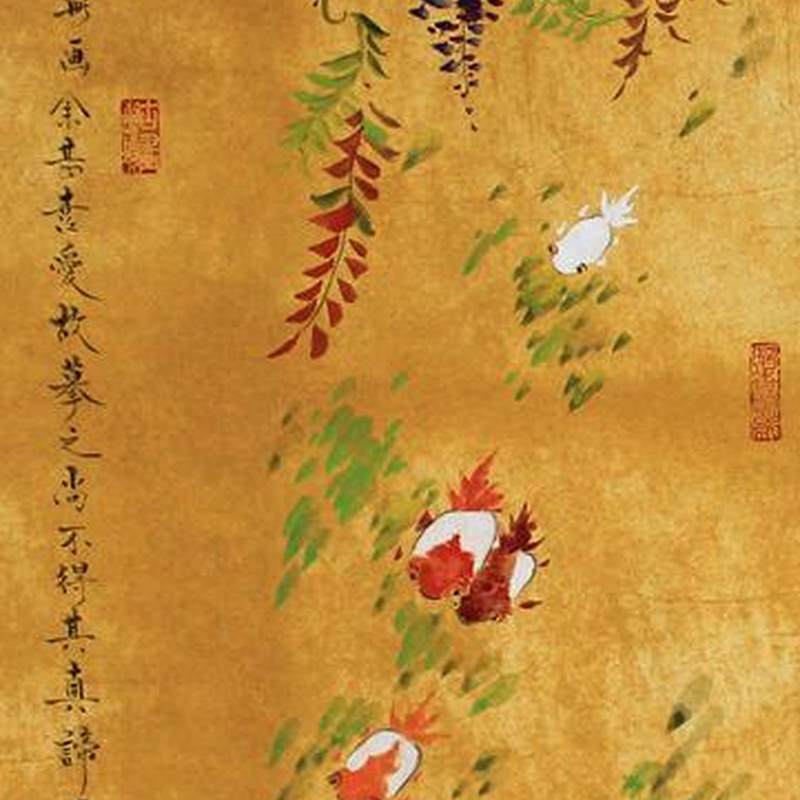 画余甚喜愛故摹之尚不得其真諦